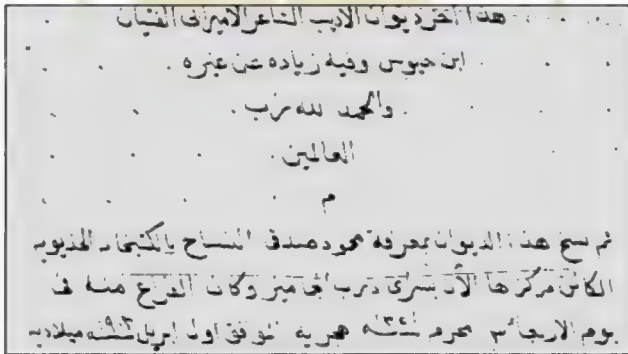 هذا آخر ديوان الأديب الشاعر الأمير أبى الفتيان
ابن حيوس وفيه زيادة عن غيره
والحمد لله رب
العالمين
م
تم نسخ هذا الديوان بمعرفة محمود صدقى النساخ بالكتبخانه الخديويه
الكائن مركزها الآن بسراى درب الجماميز وكان الفراغ منه فى
يوم الاربعاء محرم سنة هجريه الموافق اول ابريل سنة ميلاديه